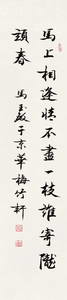 馬上相逢情不盡一枝誰寄隴
頭春 馬于京華梅竹軒